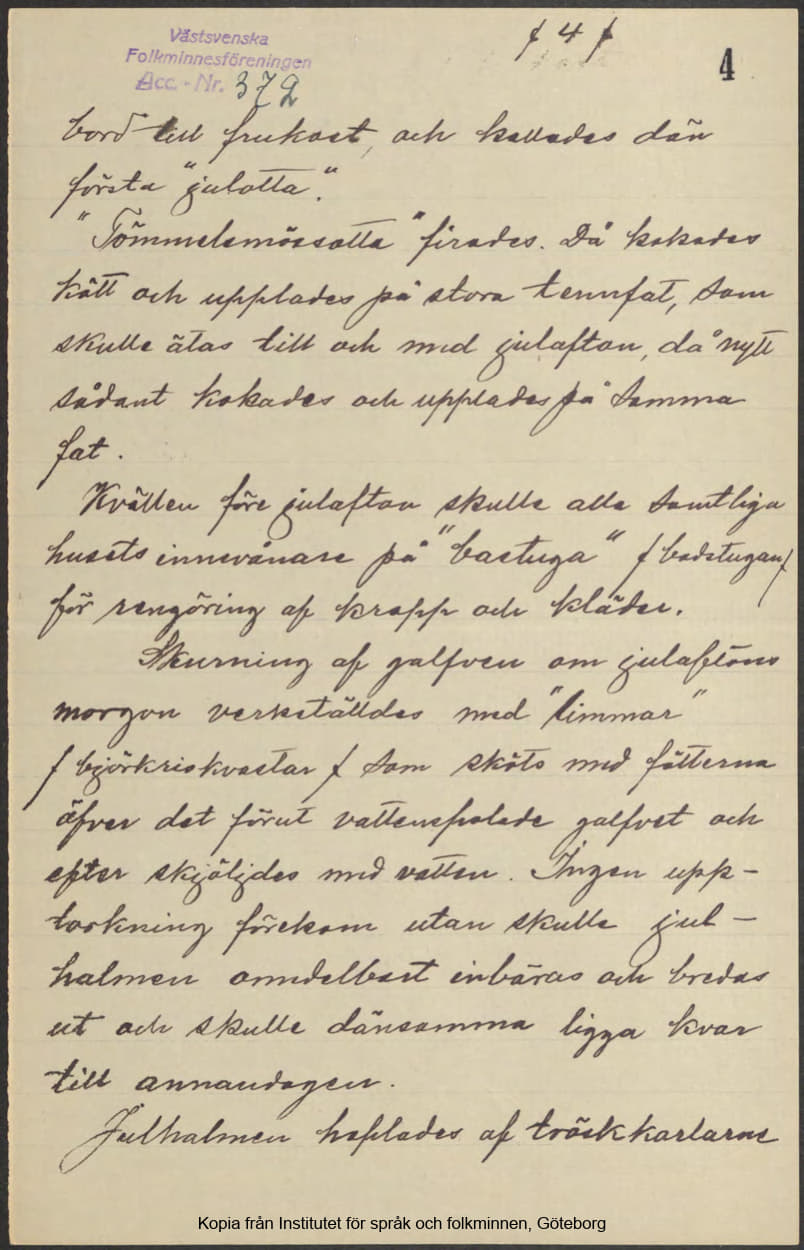 Västsvenska
Folkminnesföreningen
Acc. - Nr. 372
/ 4 /
4
bord till frukost, och kallades dän
första "julotta".
"Tömmelsmössotta" firades. Då kokades
kött och upplades på stora tennfat, som
skulle ätas till och med julafton, då nytt
sådant kokades och upplades på samma
fat.
Kvällen före julafton skulle alla samtliga
husets innevånare på "bastuga" / badstugan /
för rengöring af kropp och kläder.
Skurning af golfven om julaftons
morgon verkställdes med "limmar"
/ björkriskvastar / som sköts med fötterna
öfver det förut vattenspolade golfvet och
efter skjöljdes med vatten. Ingen upp-
torkning förekom utan skulle jul-
halmen omedelbart inbäras och bredas
ut och skulle dänsamma ligga kvar
till annandagen.
Julhalmen hoplades af tröskkarlarne
Kopia från Institutet för språk och folkminnen, Göteborg